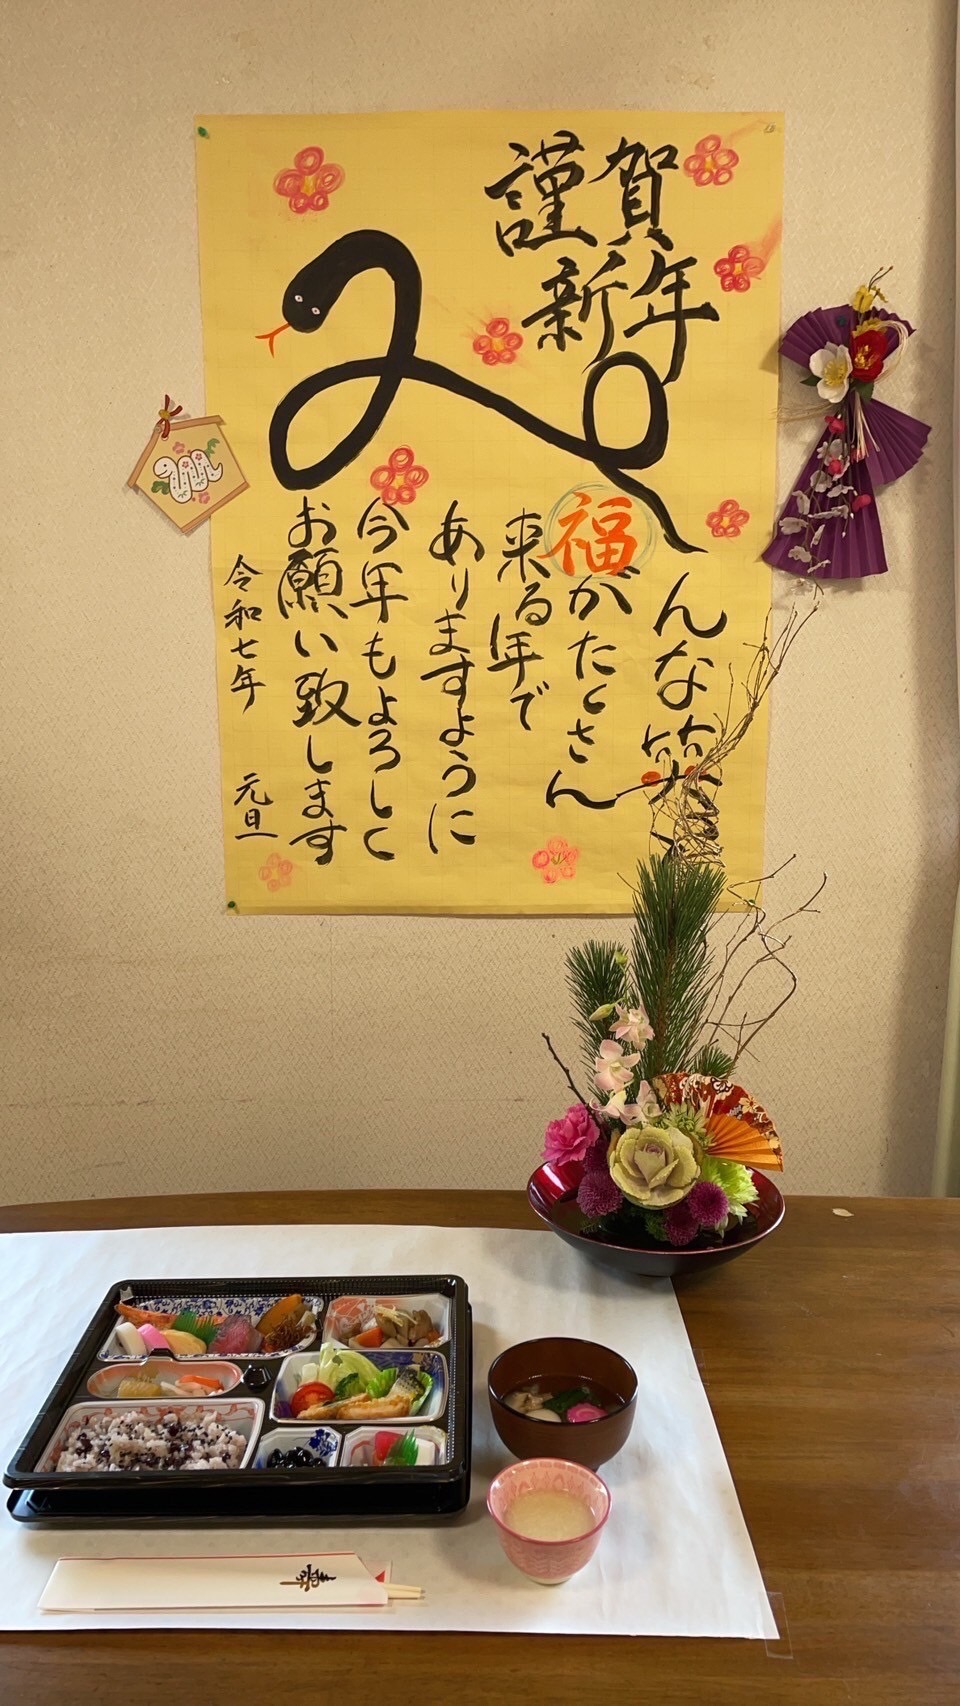 謹賀
新年
みんな笑
福がたくさん
来る年で
ありますように
今年もよろしく
お願い致します
令和七年 元旦
寿